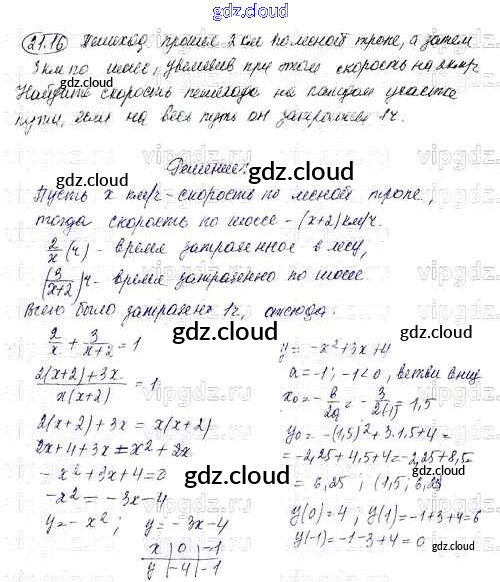 gdz.cloud
21.16 Пешеход прошел 2 км по лесной тропе, а затем
3 км по шоссе, увеличив при этом скорость на 2 км/ч
Найдите скорость пешехода на каждом участке
пути, если на весь путь он затратил 1 ч.
gdz.cloud
Решение:
Пусть x км/ч - скорость по лесной тропе,
тогда скорость по шоссе - (x+2) км/ч.
2/x (ч) - время затраченное в лесу,
(3/(x+2)) ч - время затрачено по шоссе
Всего было затрачен 1 ч, отсюда:
2/x + 3/(x+2) = 1
(2(x+2)+3x)/(x(x+2)) = 1
2(x+2)+3x = x(x+2)
2x+4+3x = x²+2x
-x²+3x+4=0
-x² = -3x-4
y = -x²; y = -3x-4
x | 0 | -1
y | -4 | -1
y = -x²+3x+4
a = -1; -1<0, ветви вниз
x₀ = -b/2a = -3/2(-1) = 1,5
y₀ = -(1,5)²+3·1,5+4 =
= -2,25+4,5+4 = -2,25+8,5
= 6,25; (1,5; 6,25
y(0)=4; y(1)=-1+3+4=6
y(-1)=-1-3+4=0
gdz.cloud
gdz.cloud
gdz.cloud
gdz.cloud
gdz.cloud
gdz.cloud
gdz.cloud